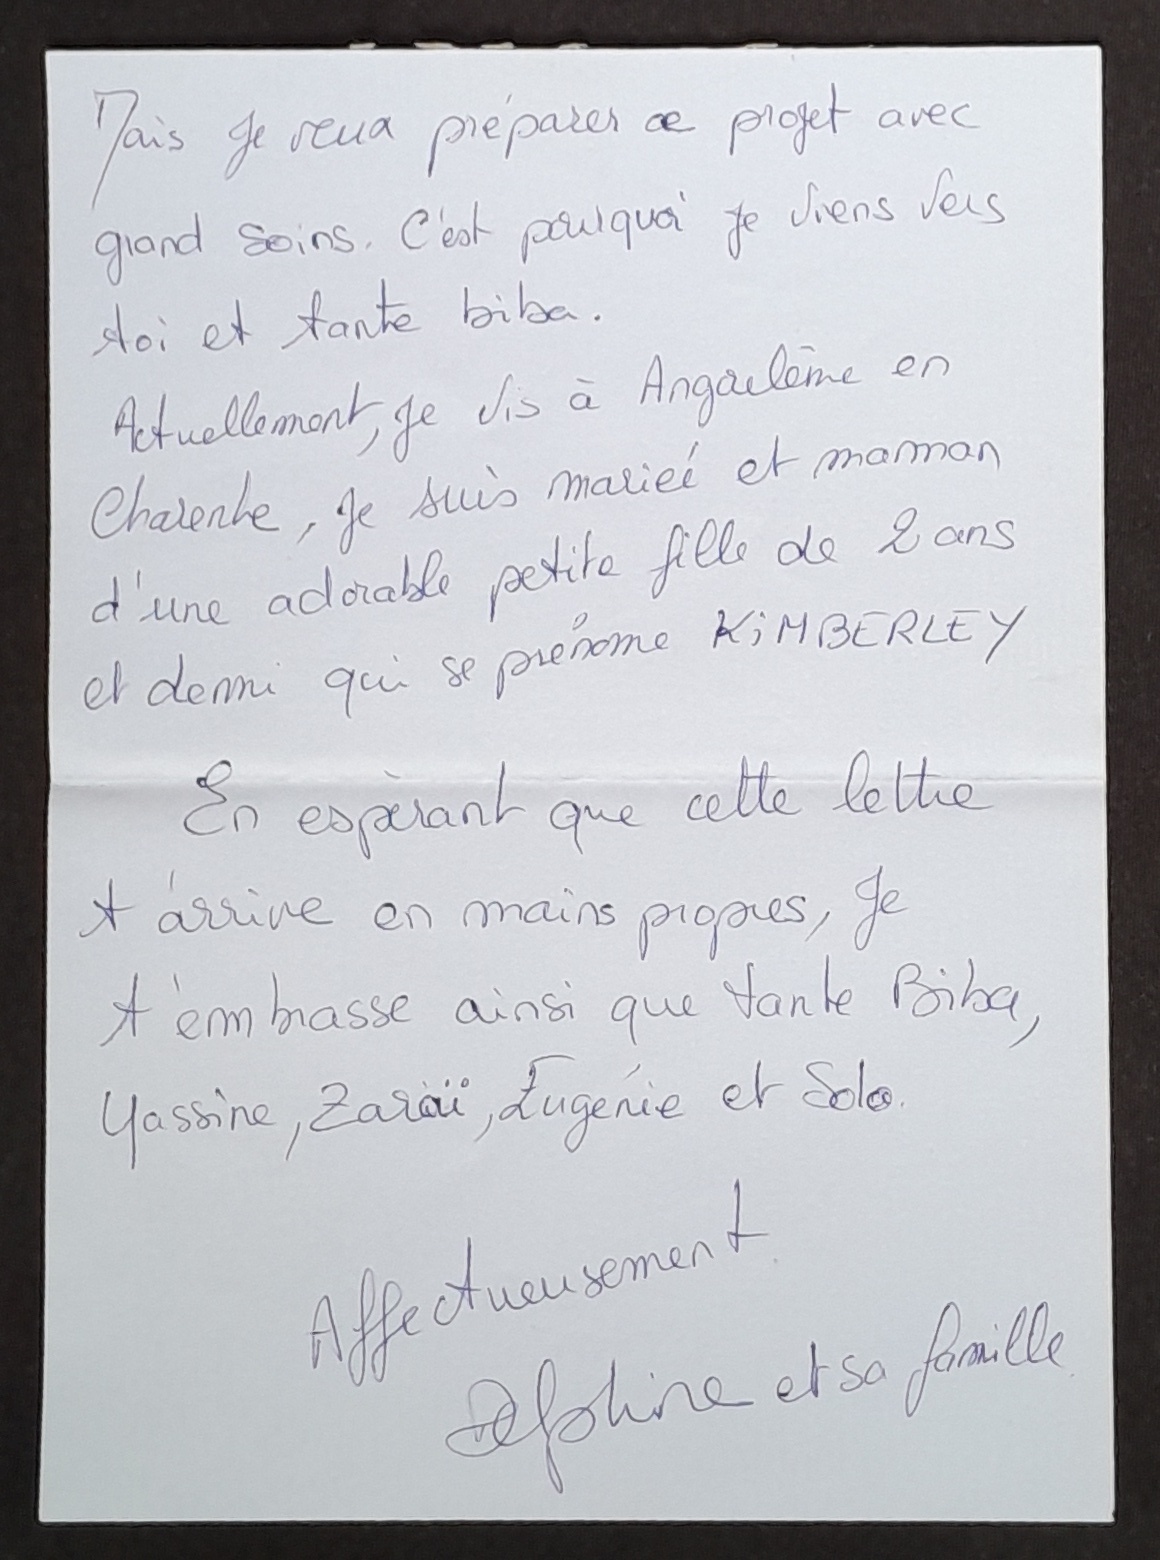 Mais je veux préparer ce projet avec
grand soins. C'est pourquoi je viens vers
toi et tante biba.
Actuellement, je vis à Angoulême en
Charente, je suis mariée et maman
d'une adorable petite fille de 2 ans
et demi qui se prénome KiMBERLEY
En espèrant que cette lettre
t'arrive en mains propres, Je
t'embrasse ainsi que tante Biba,
Yassine, Zaraï, Eugénie et Solo.
Affectueusement
Delphine et sa famille